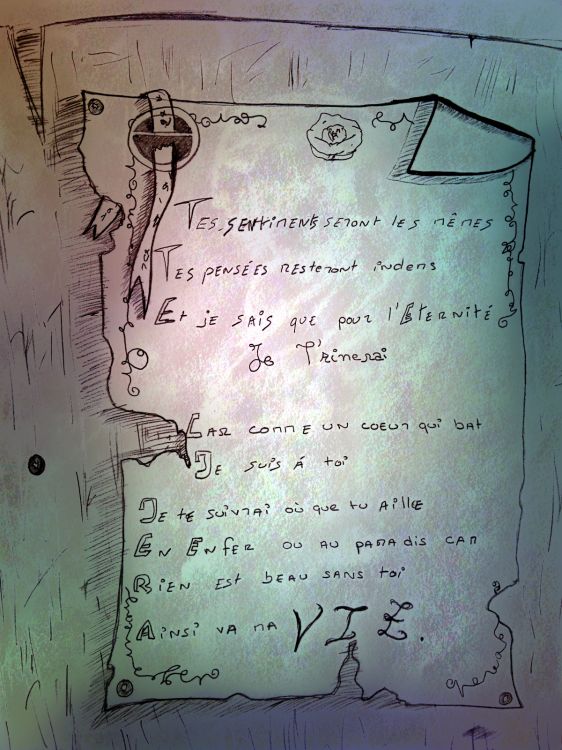 Tes sentiments seront les mêmes
Tes pensées resteront indems
Et je sais que pour l'Eternité
Je T'aimerai
Car comme un coeur qui bat
Je suis á toi
Je te suivrai où que tu aille
En Enfer ou au paradis car
Rien est beau sans toi
Ainsi va ma VIE.